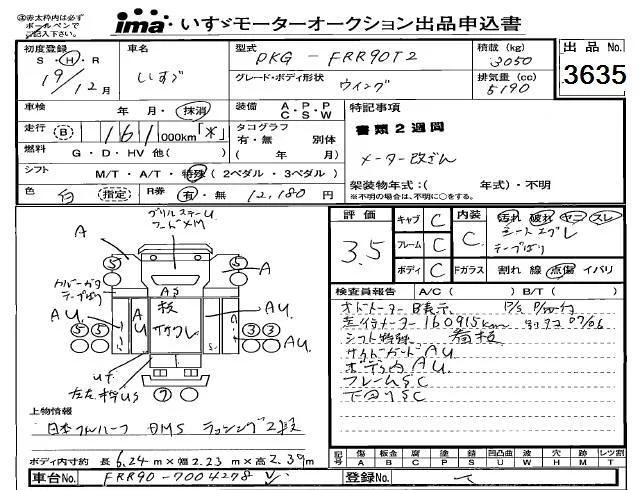 ③赤太枠内は必ず
ボールペンで
ご記入下さい。
ima いすゞモーターオークション出品申込書
初度登録 S・H・R 19/12月
車名 いすゞ
型式 PKG-FRR90T2
グレード・ボディ形状 ウイング
積載 (kg) 3050
排気量 (cc) 5190
出品No. 3635
車検 年・月・抹消
走行 (B) 161000km「*」
燃料 G・D・HV 他( )
シフト M/T・A/T・特殊(2ペダル・3ペダル)
色 白 (指定) R券 有・無 12,180円
装備 A・P・P C・S・W
タコグラフ 有・無 別体
( 年 月)
特記事項
書類2週間
メーター改ざん
架装物年式:( 年式)・不明
※不明の場合は、不明に○をする。
グリルステーU
A
A
⑤
⑤
テープばり
AS
AU
AU
AU
AU.
⑤⑤
③③
⑦
上物情報
日本フルハーフ
ラッシング2段
ボディ内寸約 長6.24m×幅2.23m×高2.39m
車台No. FRR90-7004278
評価 3.5
キャブ C
フレーム C
ボディ C
内装 C
汚れ 破れ ヤニ スレ
テープばり
Fガラス 割れ 線 点傷 イバリ
検査員報告 A/C( ) B/T( )
走行メーター160915km
シフト特殊
サイドガードAU
ボデー内AU.
フレームSC
下回りSC
記号 傷A 板金B 腐C 塗P 錆S 凹凸曲U 波W 穴H 跡M レンズ割T
登録No.